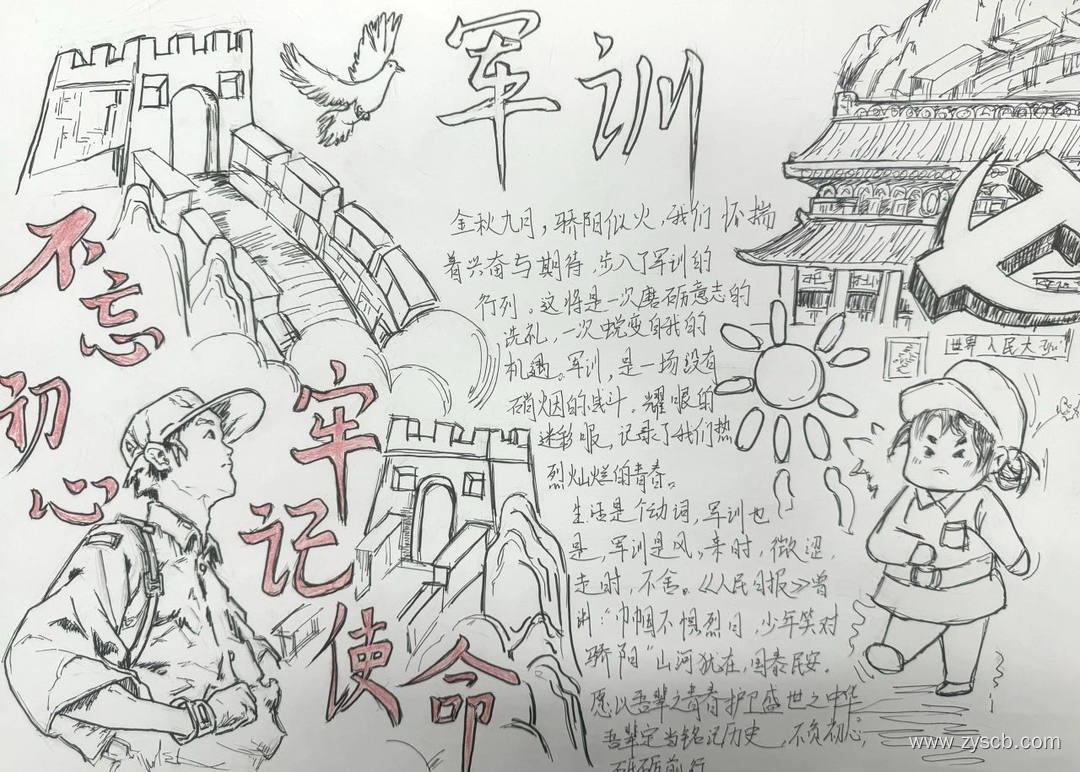 军训
不忘
初心
牢记
使命
金秋九月，骄阳似火，我们怀揣
着兴奋与期待，步入了军训的
行列。这将是一次磨砺意志的
洗礼，一次蜕变自我的
机遇。军训，是一场没有
硝烟的战斗。耀眼的
迷彩服，记录了我们热
烈灿烂的青春。
生活是个动词，军训也
是，军训是风，来时，微涩，
走时，不舍。《人民日报》曾
讲：“巾帼不惧烈日，少年笑对
骄阳”山河犹在，国泰民安。
愿以吾辈之青春护卫盛世之中华
吾辈定当铭记历史，不负初心，
砥砺前行
世界人民大
www.zyscb.com